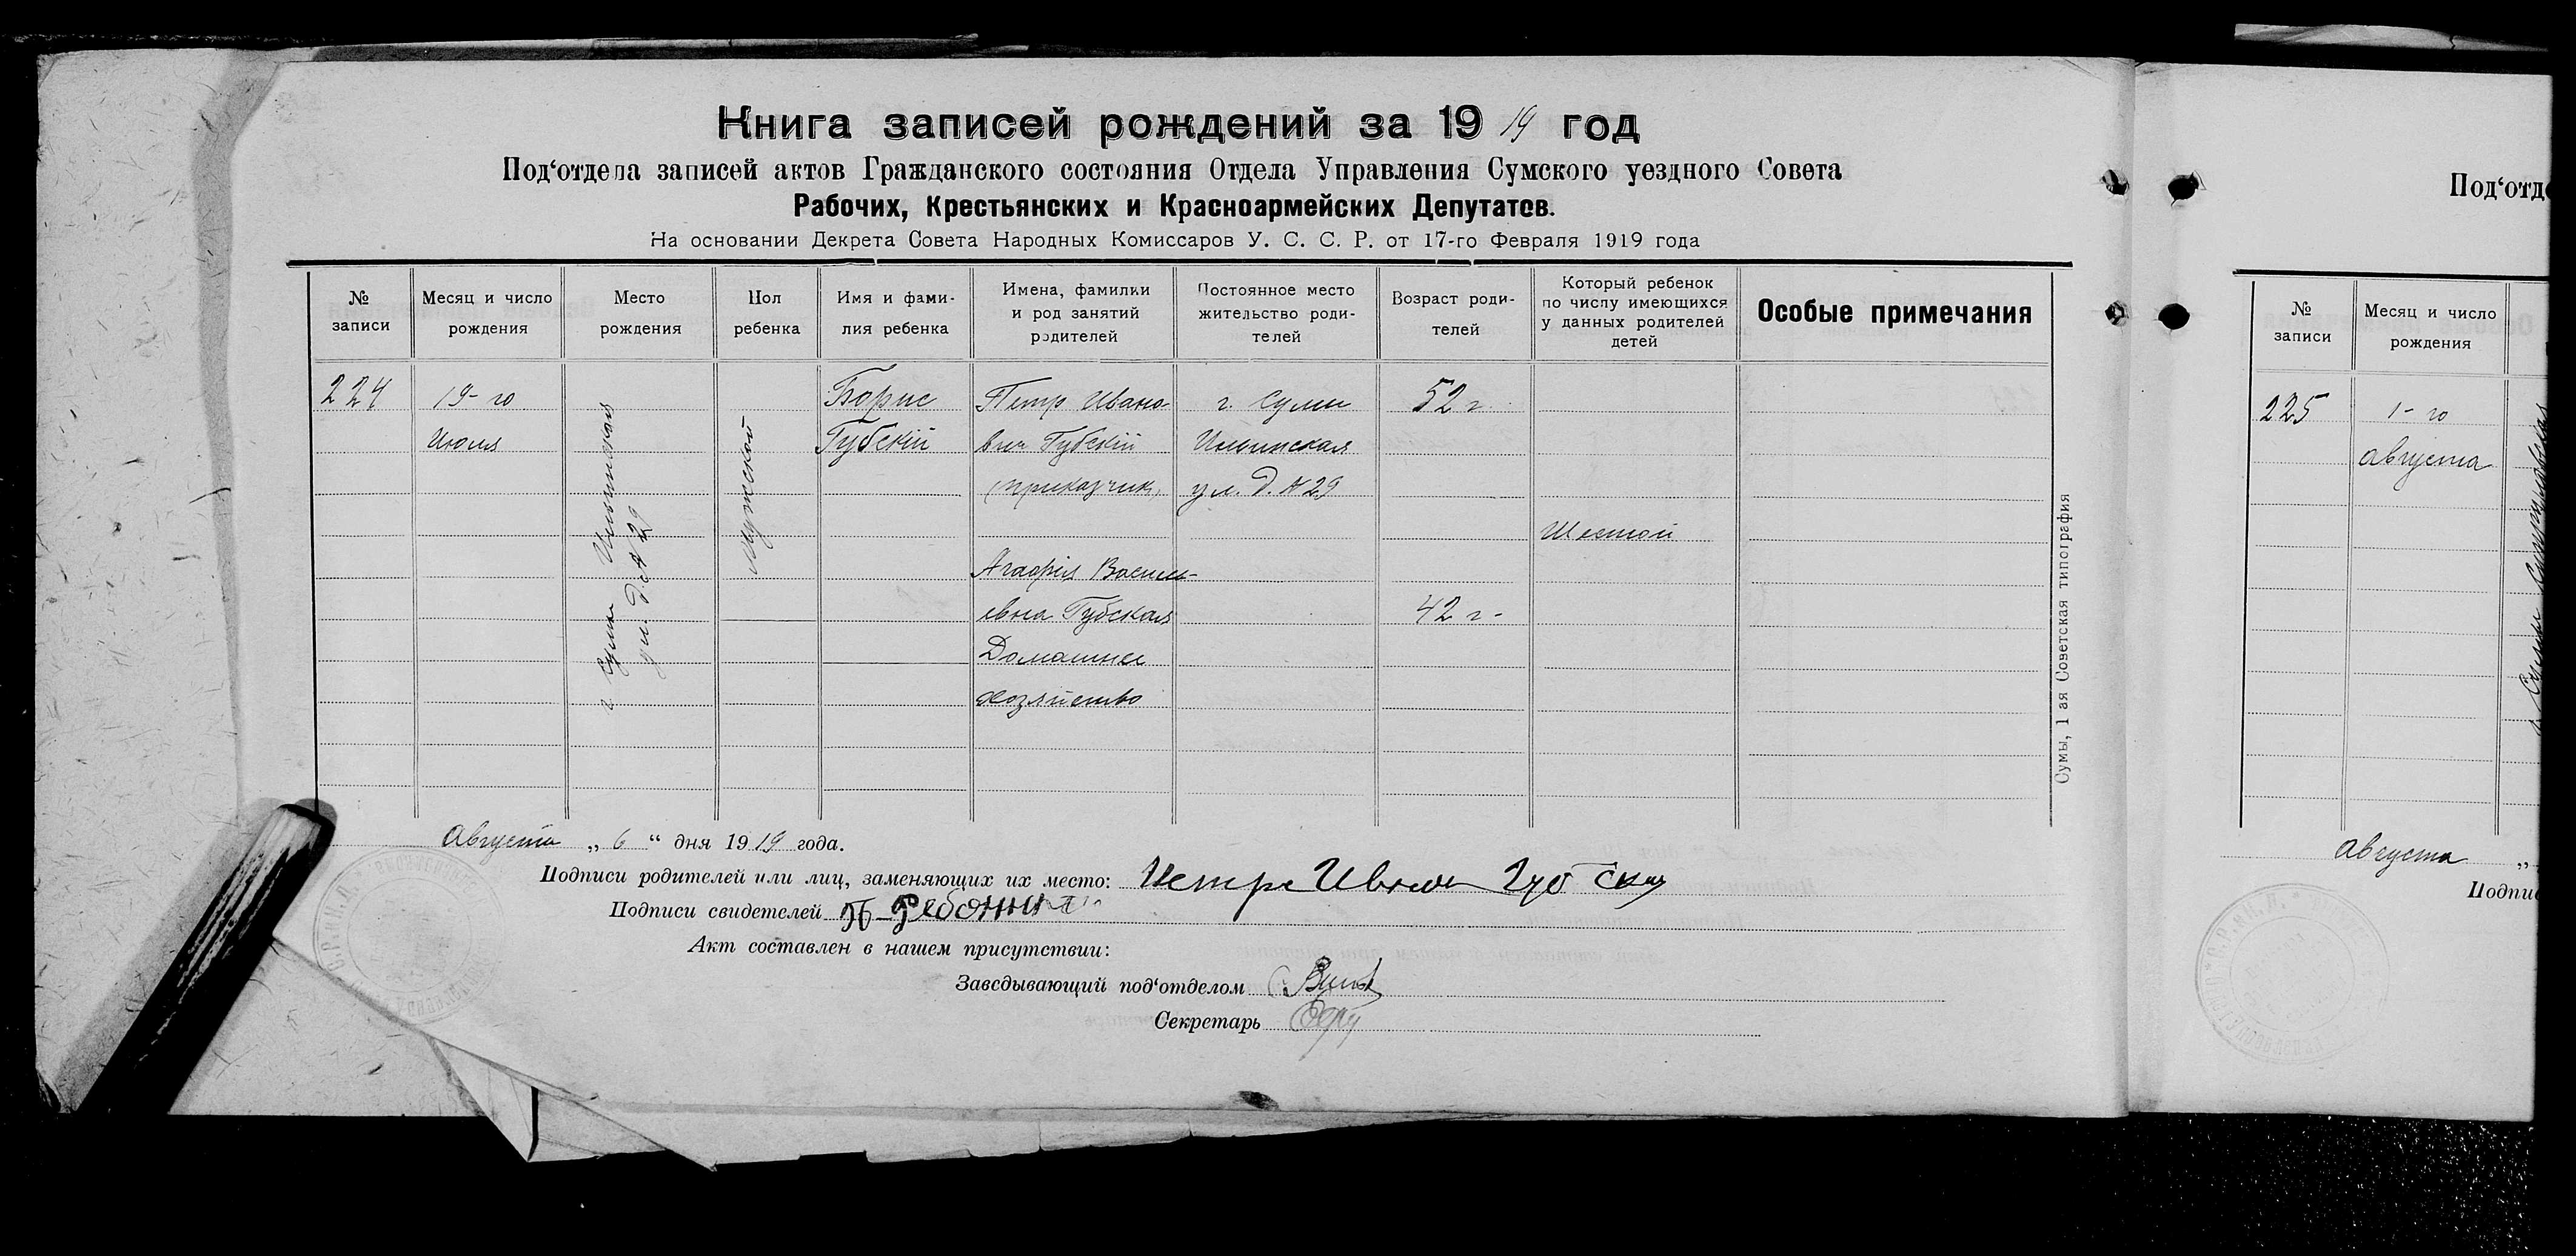 Книга записей рождений за 1919 год
Под‘отдела записей актов Гражданского состояния Отдела Управления Сумского уездного Совета
Рабочих, Крестьянских и Красноармейских Депутатов.
На основании Декрета Совета Народных Комиссаров У. С. С. Р. от 17-го Февраля 1919 года
№ записи
Месяц и число
рождения
Место
рождения
Пол
ребенка
Имя и фами-
лия ребенка
Имена, фамилии
и род занятий
родителей
Постоянное место
жительство роди-
телей
Возраст роди-
телей
Который ребенок
по числу имеющихся
у данных родителей
детей
Особые примечания
224
19-го
Июля
г. Сумы Ильинская
ул. д. № 29
Мужской
Борис
Губскій
Петр Ивано-
вич Губскій
(приказчик)
Агафія Василь-
евна Губская
Домашнее
хозяйство
г. Сумы
Ильинская
ул. д. № 29
52 г.
42 г.
Шестой
Сумы, 1 ая Советская типография
Августа „ 6 “ дня 1919 года.
Подписи родителей или лиц, заменяющих их место:
Подписи свидетелей
Акт составлен в нашем присутствии:
Заведывающий под‘отделом
Секретарь
Под‘отд
№
записи
Месяц и число
рождения
225
1-го
Августа
Августа „
Подпи